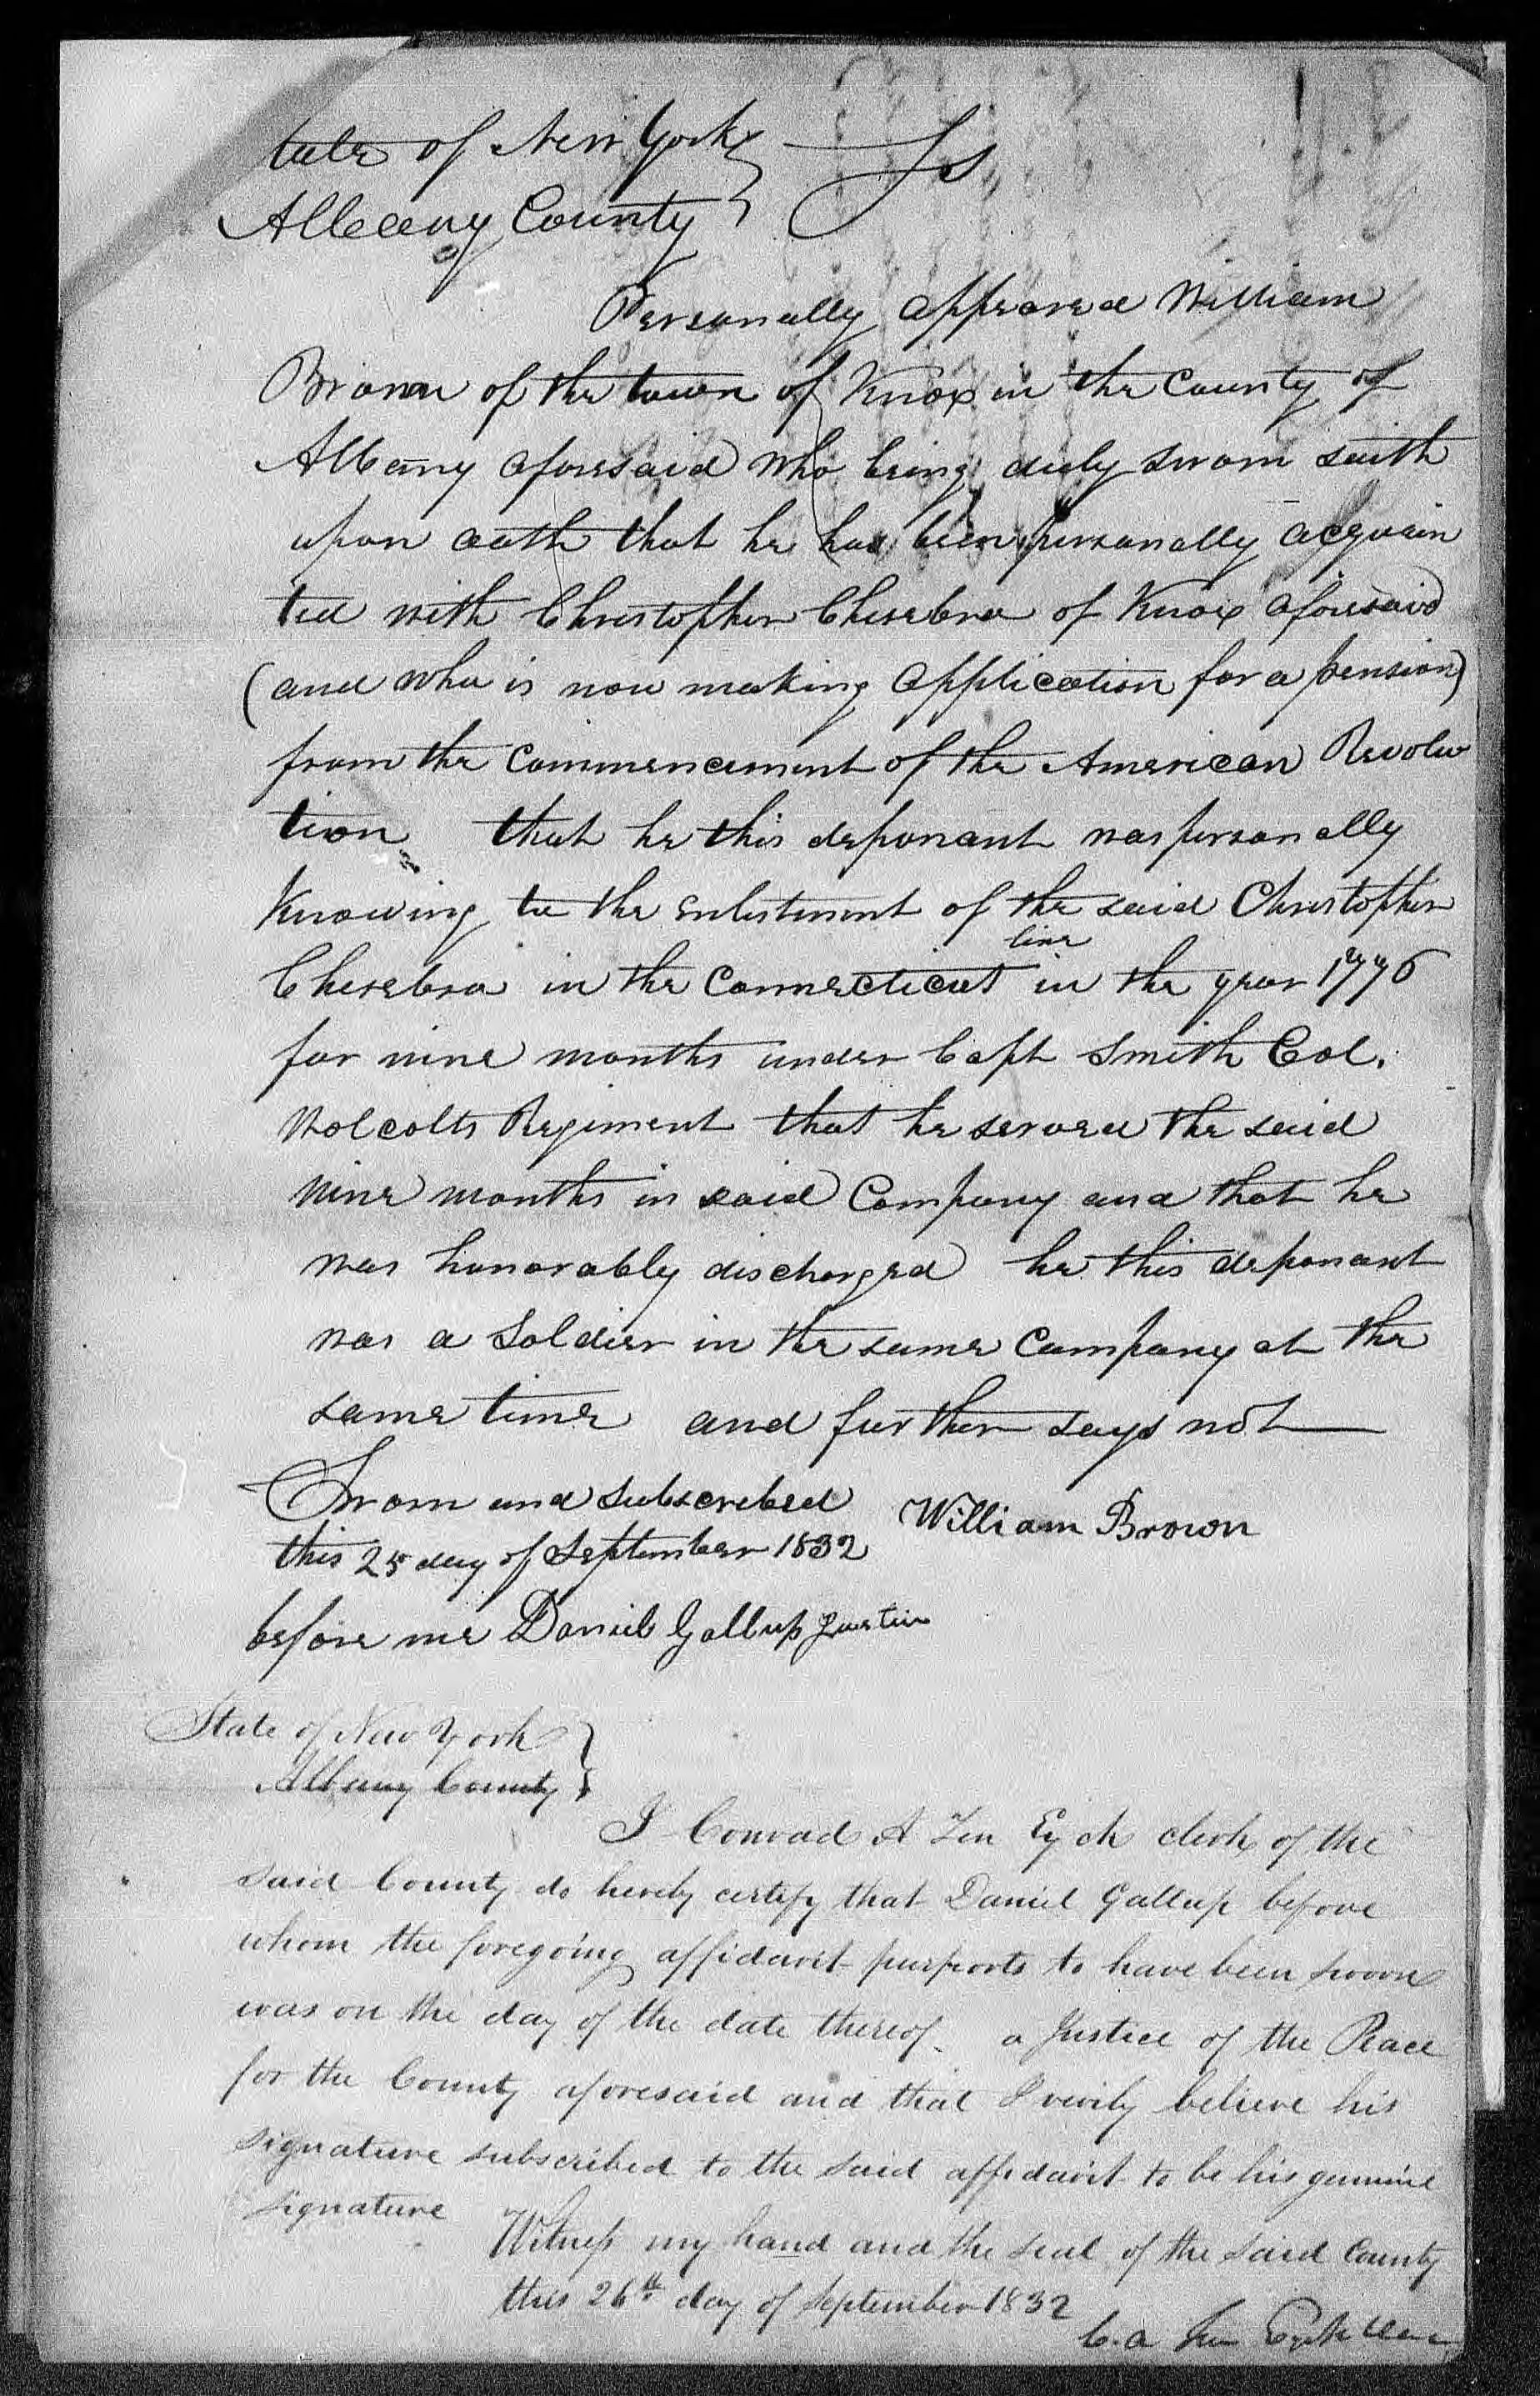 tate of New York } ss
Albany County }
Personally appeared William
Brown of the town of Knox in the County of
Albany aforesaid who being duly sworn saith
upon oath that he has been personally acquain
ted with Christopher Chesebro of Knox aforesaid
(and who is now making application for a pension)
from the Commencement of the American Revolu
tion that he this deponant was personally
Knowing to the enlistment of the said Christopher
line
Chesebro in the Connecticut in the year 1776
for nine months under Capt Smith Col.
Wolcotts Regiment that he served the said
nine months in said Company and that he
was honorably discharged he this deponant
was a Soldier in the same Company at the
same time and further says not
Sworn and subscribed
William Brown
this 25 day of September 1832
before me Daniel Gallup Justice
State of New York }
Albany County }
I Conrad A Ten Eyck clerk of the
said County do hereby certify that Daniel Gallup before
whom the foregoing affidavit purports to have been sworn
was on the day of the date thereof a Justice of the Peace
for the County aforesaid and that I verily believe his
signature subscribed to the said affidavit to be his genuine
signature
Witness my hand and the seal of the said County
this 26th day of September 1832
C. A Ten Eyck Clerk